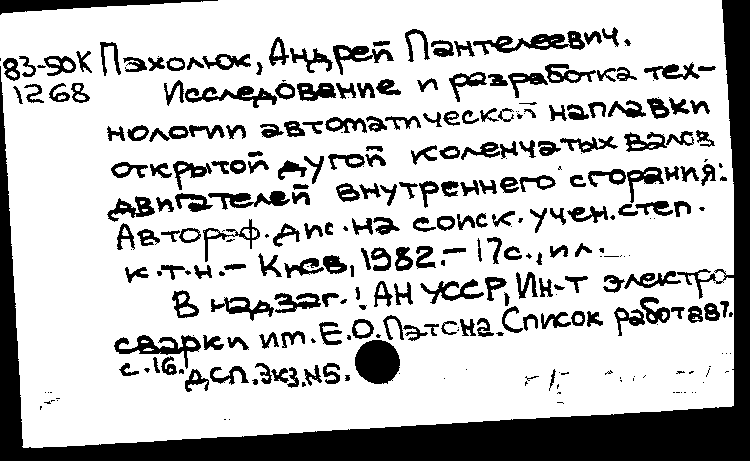 83-50К Пахолюк, Андрей Пантелеевич.
1268 Исследование и разработка тех-
нологии автоматической наплавки
открытой дугой коленчатых валов
двигателей внутреннего сгорания:
Автореф. дис. на соиск. учен. степ.
к.т.н. - Киев, 1982. - 17с., ил.
В надзаг.: АН УССР, Ин-т электро-
сварки им. Е.О. Патона. Список работ авт.
с.16.
ДСП. Экз. №5.